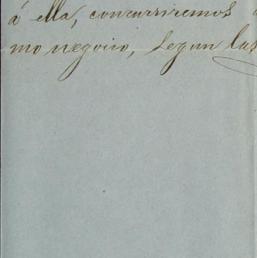 á ella, concurriremos
mo negocio, segun las